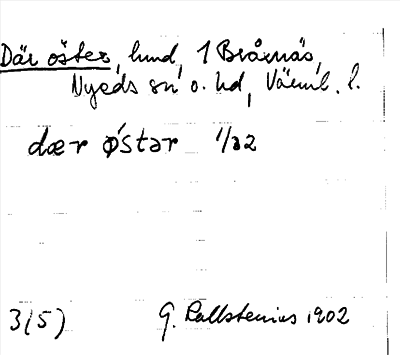 Där öster, lund, 1 Bråtnäs,
Nyeds sn o. hd, Värml. l.
dær østər 1/22
3(5) G. Kallstenius 1902